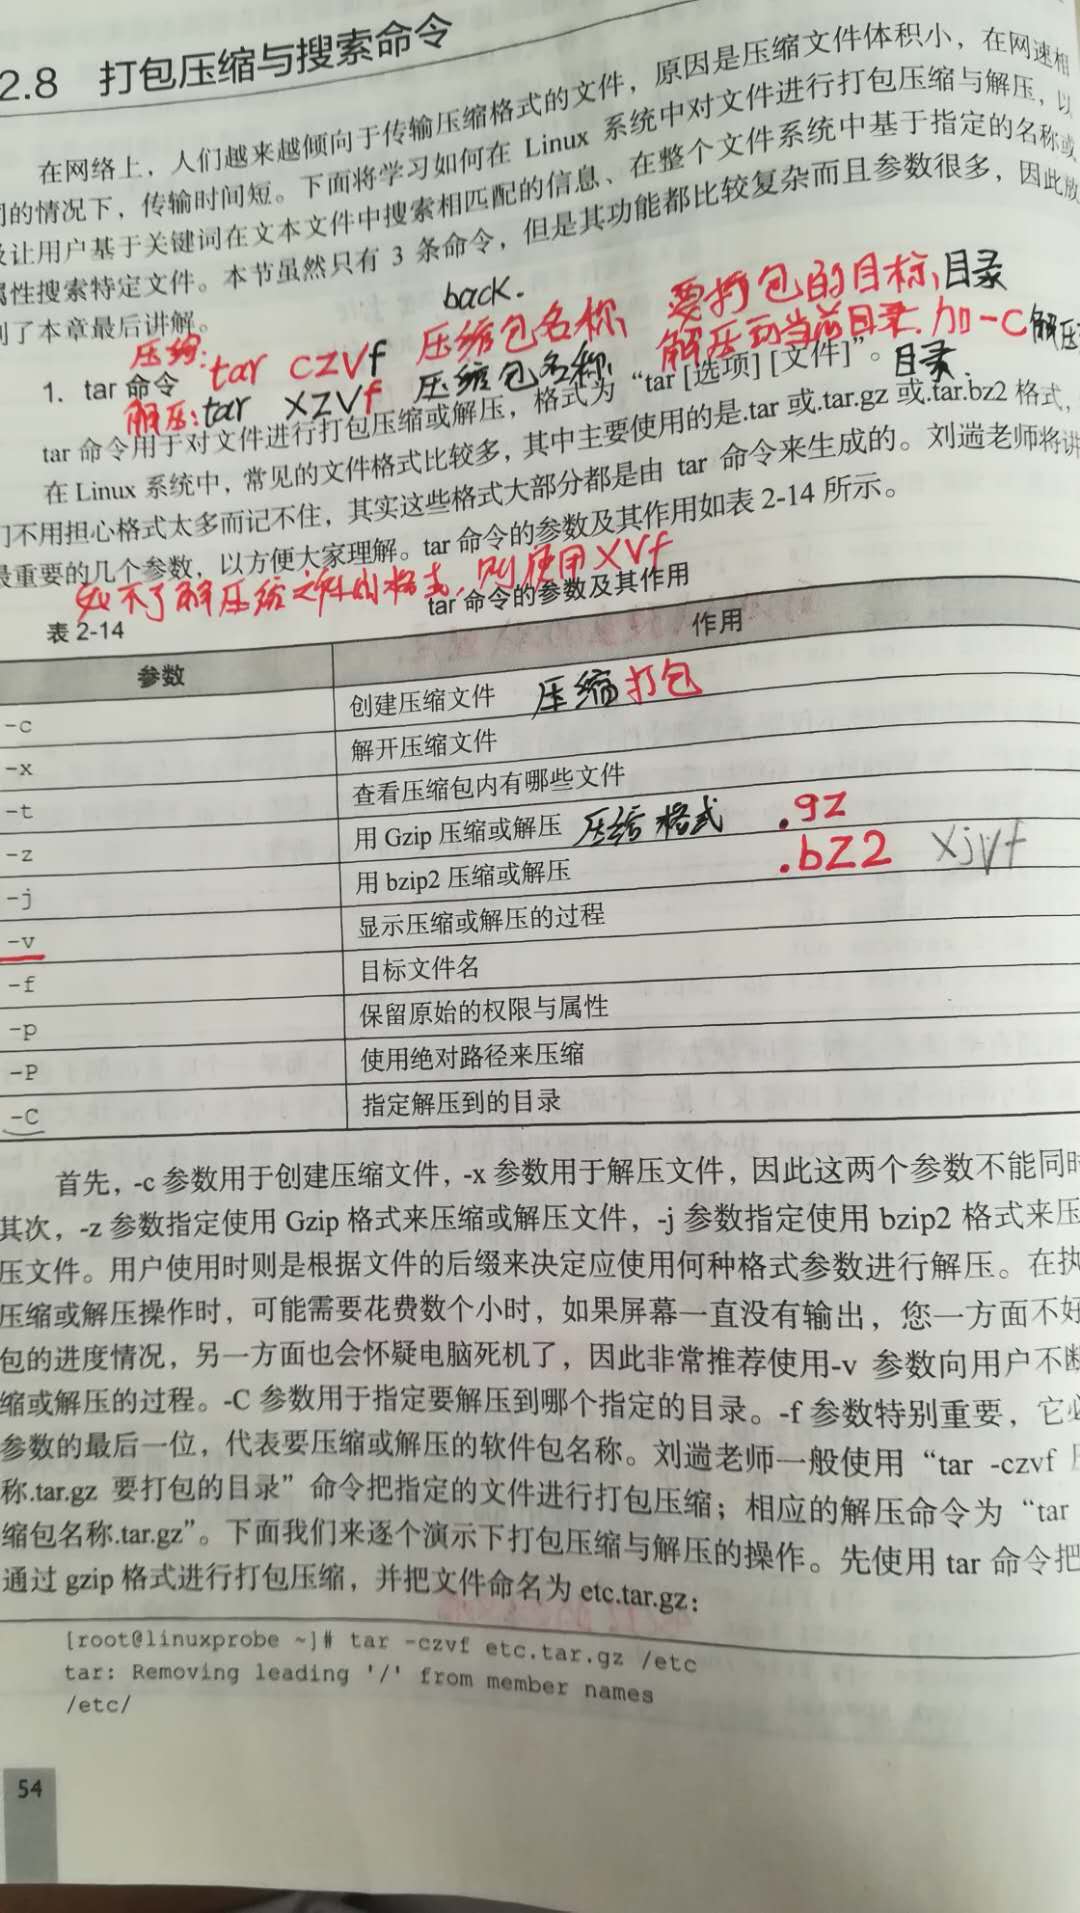 2.8 打包压缩与搜索命令
在网络上，人们越来越倾向于传输压缩格式的文件，原因是压缩文件体积小，在网速相
的情况下，传输时间短。下面将学习如何在 Linux 系统中对文件进行打包压缩与解压，以
让用户基于关键词在文本文件中搜索相匹配的信息、在整个文件系统中基于指定的名称或
属性搜索特定文件。本节虽然只有 3 条命令，但是其功能都比较复杂而且参数很多，因此放
到了本章最后讲解。
back.
压缩: tar czvf 压缩包名称 要打包的目标 目录
1. tar 命令
解压: tar xzvf 压缩包名称 解压到当前目录. 加-C 解压
目录.
tar 命令用于对文件进行打包压缩或解压，格式为“tar [选项] [文件]”。
在 Linux 系统中，常见的文件格式比较多，其中主要使用的是.tar 或.tar.gz 或.tar.bz2 格式，
们不用担心格式太多而记不住，其实这些格式大部分都是由 tar 命令来生成的。刘遄老师将讲
最重要的几个参数，以方便大家理解。tar 命令的参数及其作用如表 2-14 所示。
如不了解压缩文件的格式, 则使用 xvf
表 2-14 tar 命令的参数及其作用
参数 作用
-c 创建压缩文件 压缩打包
-x 解开压缩文件
-t 查看压缩包内有哪些文件
-z 用 Gzip 压缩或解压 压缩格式 .gz
-j 用 bzip2 压缩或解压 .bz2 xjvf
-v 显示压缩或解压的过程
-f 目标文件名
-p 保留原始的权限与属性
-P 使用绝对路径来压缩
-C 指定解压到的目录
首先，-c 参数用于创建压缩文件，-x 参数用于解压文件，因此这两个参数不能同时
其次，-z 参数指定使用 Gzip 格式来压缩或解压文件，-j 参数指定使用 bzip2 格式来压
压文件。用户使用时则是根据文件的后缀来决定应使用何种格式参数进行解压。在执
压缩或解压操作时，可能需要花费数个小时，如果屏幕一直没有输出，您一方面不好
包的进度情况，另一方面也会怀疑电脑死机了，因此非常推荐使用-v 参数向用户不断
缩或解压的过程。-C 参数用于指定要解压到哪个指定的目录。-f 参数特别重要，它必
参数的最后一位，代表要压缩或解压的软件包名称。刘遄老师一般使用“tar -czvf 压
称.tar.gz 要打包的目录”命令把指定的文件进行打包压缩；相应的解压命令为“tar
缩包名称.tar.gz”。下面我们来逐个演示下打包压缩与解压的操作。先使用 tar 命令把
通过 gzip 格式进行打包压缩，并把文件命名为 etc.tar.gz：
[root@linuxprobe ~]# tar -czvf etc.tar.gz /etc
tar: Removing leading '/' from member names
/etc/
54